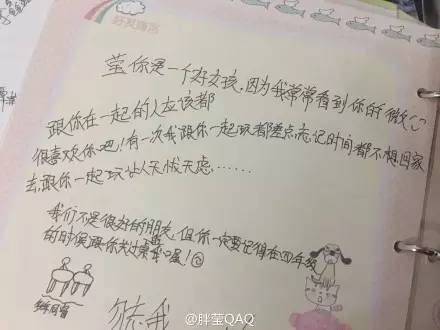 好友留言
莹你是一个好女孩,因为我常常看到你的微
跟你在一起的人应该都
很喜欢你吧!有一次我跟你一起玩都差点忘记时间都不想回家
去,跟你一起玩让人无忧无虑,……
我们不是很好的朋友,但你一定要记得在四年级
的时候跟你坐过喔!
勿忘我
@胖莹QAQ